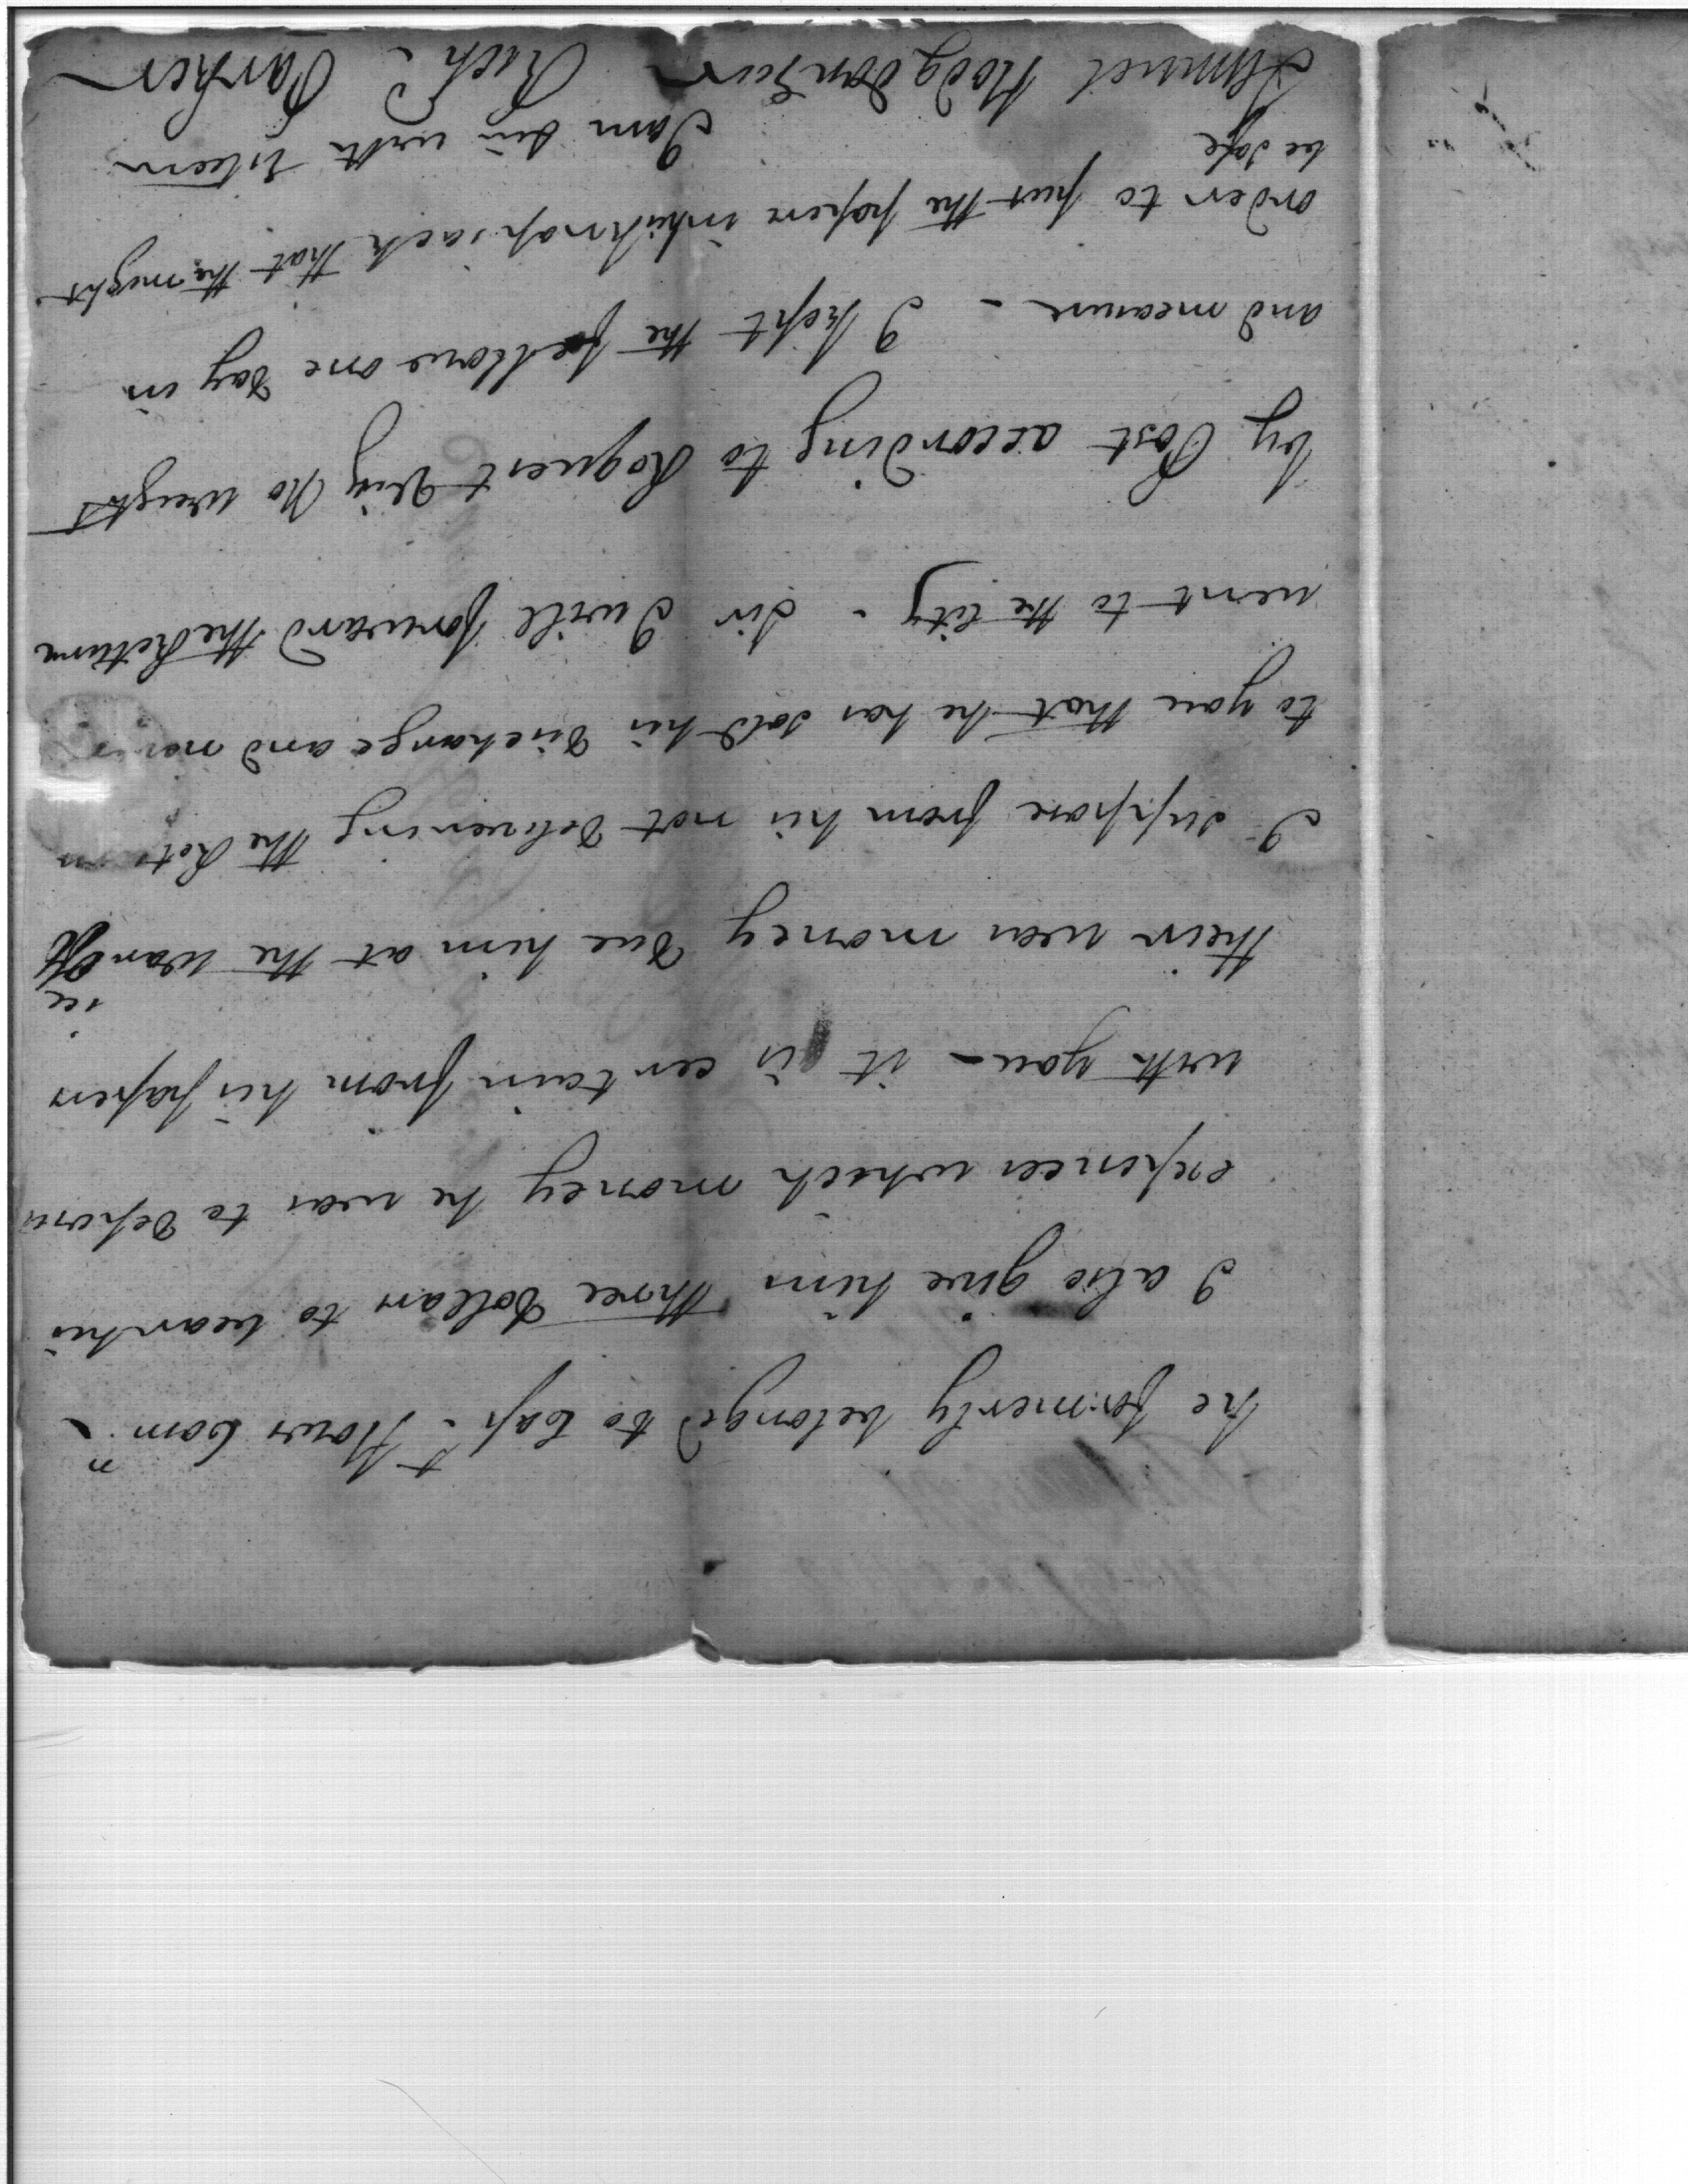 he formerly belong'd to Capt. Hows Comy
I also give him three Dollars to bear his
expences which money he was to deposi
with you - it is certain from his papers
their was money due him at the War Office
I suppose from his not delivering the Return
to you that he has sold his discharge and never
went to the City. Sir I will forward the Return
by Post according to Request Viz No weight
and measure - I kept the fellow one day in
order to put the papers in his knapsack that the might
be safe
I am Sir with Esteem
Samuel Hodgdon Esqr Richd Parker